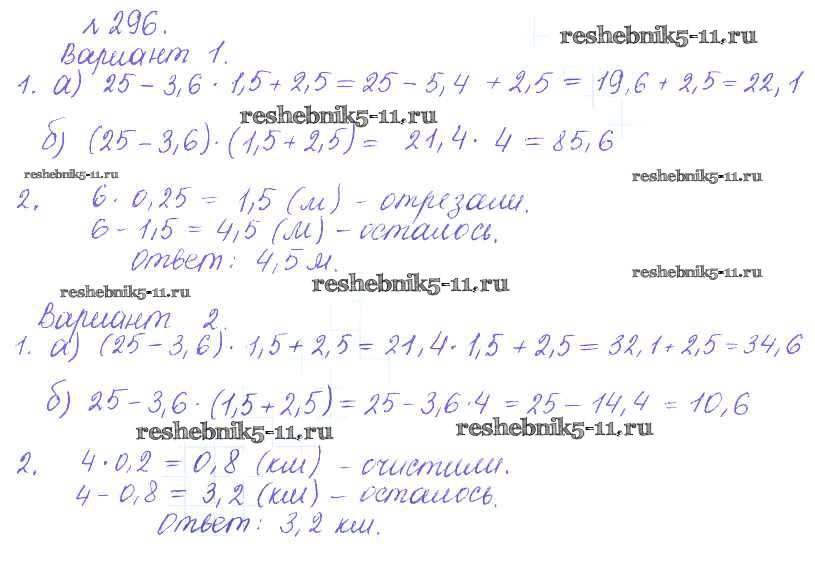 № 296.
reshebnik5-11.ru
Вариант 1.
1. а) 25 - 3,6 · 1,5 + 2,5 = 25 - 5,4 + 2,5 = 19,6 + 2,5 = 22,1
reshebnik5-11.ru
б) (25 - 3,6) · (1,5 + 2,5) = 21,4 · 4 = 85,6
reshebnik5-11.ru
reshebnik5-11.ru
2. 6 · 0,25 = 1,5 (м) - отрезали.
6 - 1,5 = 4,5 (м) - осталось.
Ответ: 4,5 м.
reshebnik5-11.ru
reshebnik5-11.ru
reshebnik5-11.ru
Вариант 2.
1. а) (25 - 3,6) · 1,5 + 2,5 = 21,4 · 1,5 + 2,5 = 32,1 + 2,5 = 34,6
б) 25 - 3,6 · (1,5 + 2,5) = 25 - 3,6 · 4 = 25 - 14,4 = 10,6
reshebnik5-11.ru
reshebnik5-11.ru
2. 4 · 0,2 = 0,8 (км) - очистили.
4 - 0,8 = 3,2 (км) - осталось.
Ответ: 3,2 км.